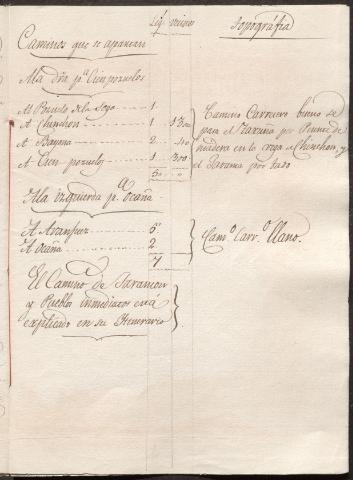 Leg. minutos
Topográfia
Caminos que se apartan
A la dra pa. Cienpozuelos
Al Pozuelo de la Soga 1
A Chinchon 1 1/30
A Bayona 2 40
A Cien pozuelos 1 30
5 0
Camino Carretero bueno se
pasa el Tajuña por Puente de
madera en la vega de Chinchon, y
el Jarama por vado
A la izquierda pa. Ocaña
A Aranjuez 5
A Ocaña 2
7
Camo. Carro. llano.
El Camino de Tarancon
y Pueblos inmediatos está
explicado en su Itinerario